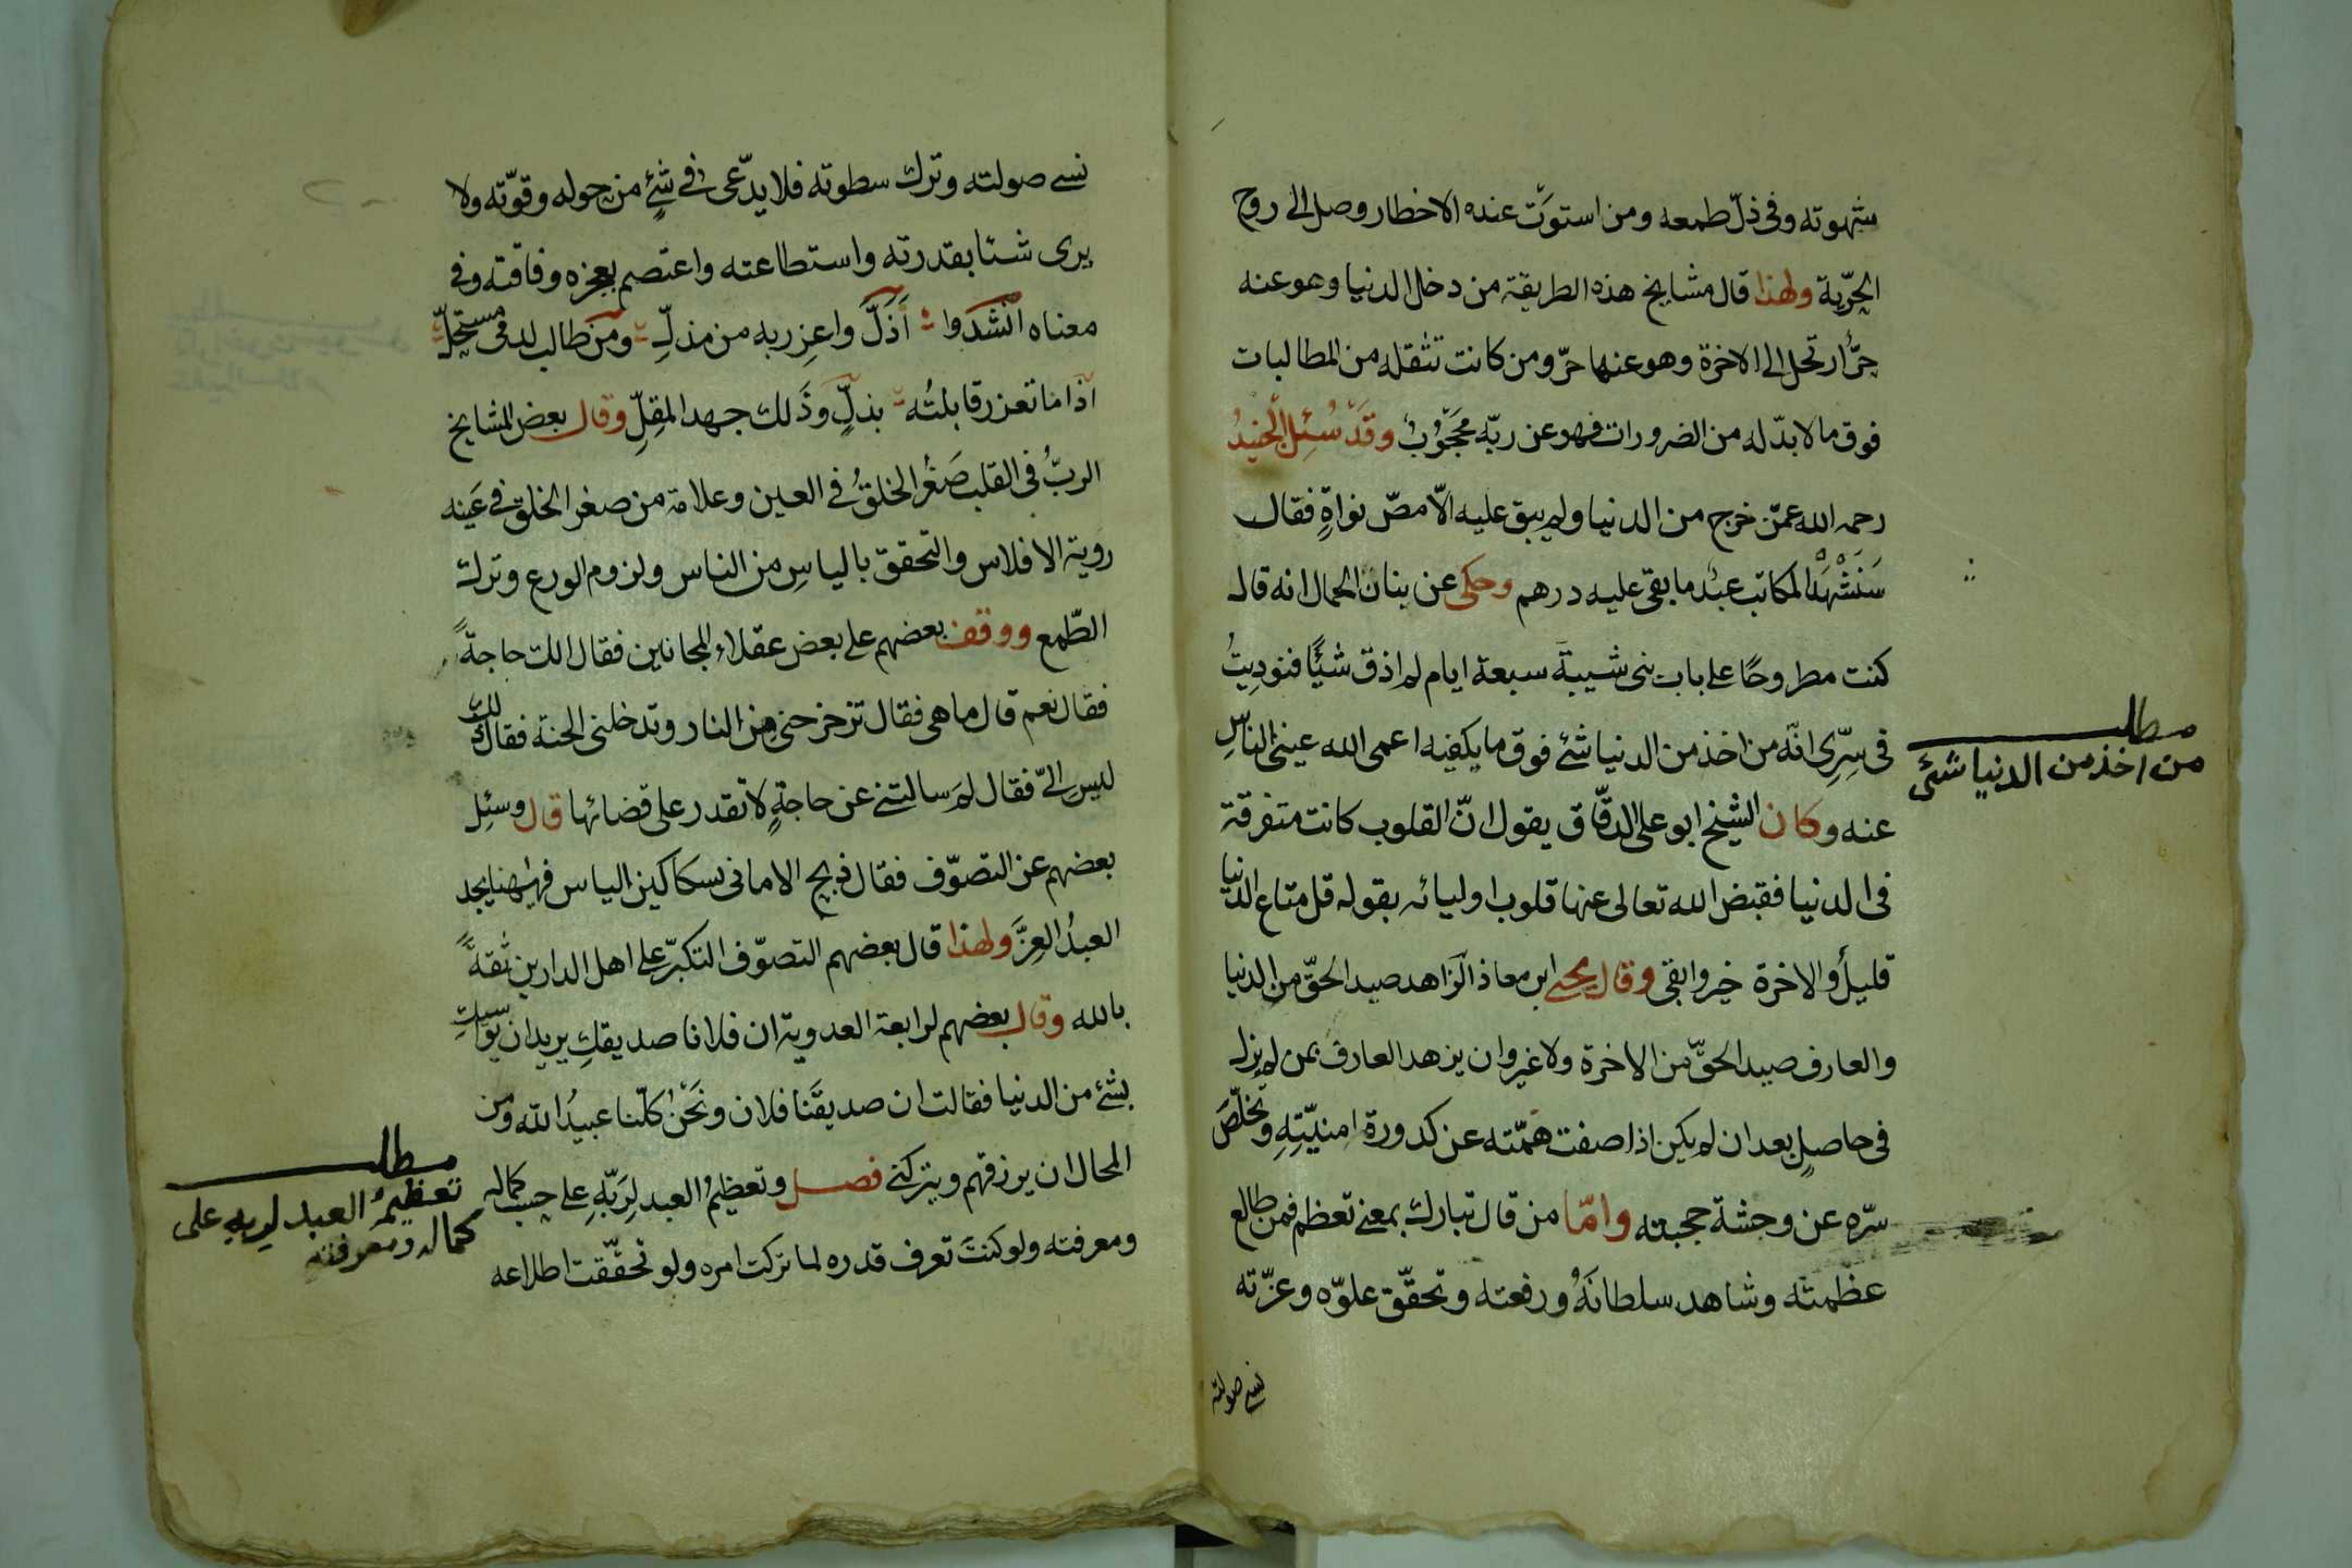 شهوته وفى ذلّ طمعه ومن استوت عنده الاخطار وصل الى روح
الحرّية ولهذا قال مشايخ هذه الطريقة من دخل الدنيا وهو عنه
حرًّ ارتحل الى الاخرة وهو عنها حرّ ومن كانت تثقله من المطالبات
فوق ما لا بدّ له من الضرورات فهو عن ربّه محجوبٌ وقد سُئِل الجنيدُ
رحمه الله عمّن خرج من الدنيا ولم يبق عليه الّا مصّ نواةٍ فقال
المكاتب عبدٌ ما بقى عليه درهم وحكى عن بنان الحمال انه قال
كنت مطروحًا على باب بنى شيبة سبعة ايام لم اذق شيًا فنوديتُ
فى سِرِّى انّه من اخذ من الدنيا شئ فوق ما يكفيه اعمى الله عينى الناس
مطلب
من اخذ من الدنيا شئ
عنه وكان الشيخ ابو على الدقّاق يقول انّ القلوب كانت متفرقة
فى الدنيا فقبض الله تعالى عنها قلوب اوليائه بقوله قل متاع الدنيا
قليلٌ والاخرة خير وابقى وقال يحيى ابن معاذ الزاهد صيد الحقّ من الدنيا
والعارف صيد الحقّ من الاخرة ولا غير وان يزهد العارف بمن لم يزل
فى حاصلٍ بعد ان لم يكن اذا صفت همّته عن كدورة امنيّتِهِ وتخلّصَ
سرّه عن وحشة حجبته وامّا من قال تبارك بمعنى تعظم فمن طالع
عظمته وشاهد سلطانَهُ ورفعته وتحقّق علوّه وعزّته
نسى صولته
نسى صولته وترك سطوته فلا يدّعى فى شئٍ من حوله وقوّته ولا
يرى شئا بقدرته واستطاعته واعتصم بعجزه وفاقته وفى
معناه انشدوا اذلّ واعزز به من مذلّ ومن طالب لدمى مستحلّ
اذا ما تعزز قابلتُه بذلٍّ وذلك جهد المقلّ وقال بعض المشايخ
الربّ فى القلب صَغُر الخلقُ فى العين وعلامة من صغر الخلق فى عَينه
روية الافلاس والتحقق بالياسِ من الناس ولزوم الورع وترك
الطّمع ووقف بعضهم على بعض عقلاء المجانين فقال الك حاجةً
فقال نعم قال ما هى فقال تزحزحنى من النار وتدخلنى الجنة فقال ذلك
ليس الىّ فقال لمَ سالتنى عن حاجةٍ لا تقدر على قضائها قال وسئِل
بعضهم عن التصوّف فقال ذبح الامانى بسكاكين الياس فههنا يجد
العبدُ العِزَّ ولهذا قال بعضهم التصوّف التكبّر على اهل الدارين ثقةً
بالله وقال بعضهم لرابعة العدوية ان فلانا صديقكِ يريد ان يواسيكِ
بشئ من الدنيا فقالت ان صديقَنا فلان ونحن كلّنا عبيدُ الله ومن
المحال ان يرزقهم ويتركنى فصل وتعظيمُ العبد لِرَبّهِ على حسب كماله
ومعرفته ولو كنتَ تعرف قدره لما تركت امره ولو تحقّقت اطلاعه
مطلب
تعظيمُ العبد لربه على
كماله ومعرفته